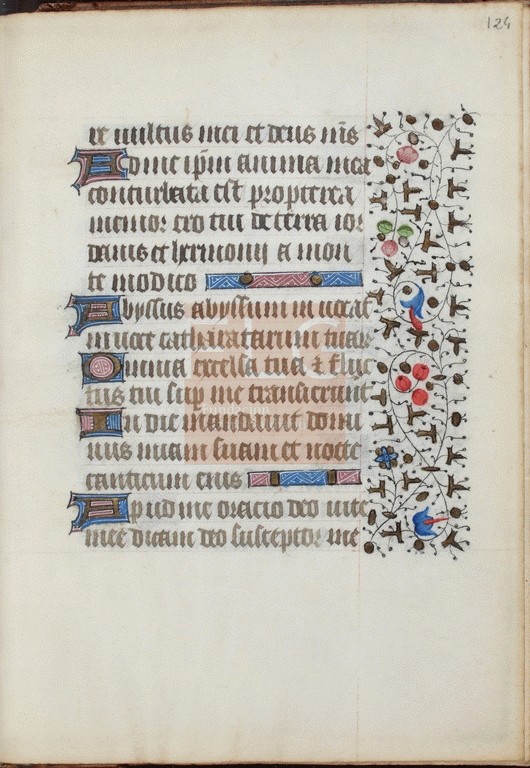 124
re vultus mei et deus me̅s
Ad me ip̅m anima mea
conturbata est propterea
memor ero tui de terra ior
danis et hermonij a mon
te modico
Abyssus abyssum in uocat
in uoce catharatarum tuar
Omnia excelsa tua et fluc
tus tui sup me transierunt
In die mandauit domi
nus misam suam et nocte
canticum eius
Apud me oracio deo uite
mee dicam deo susceptor me